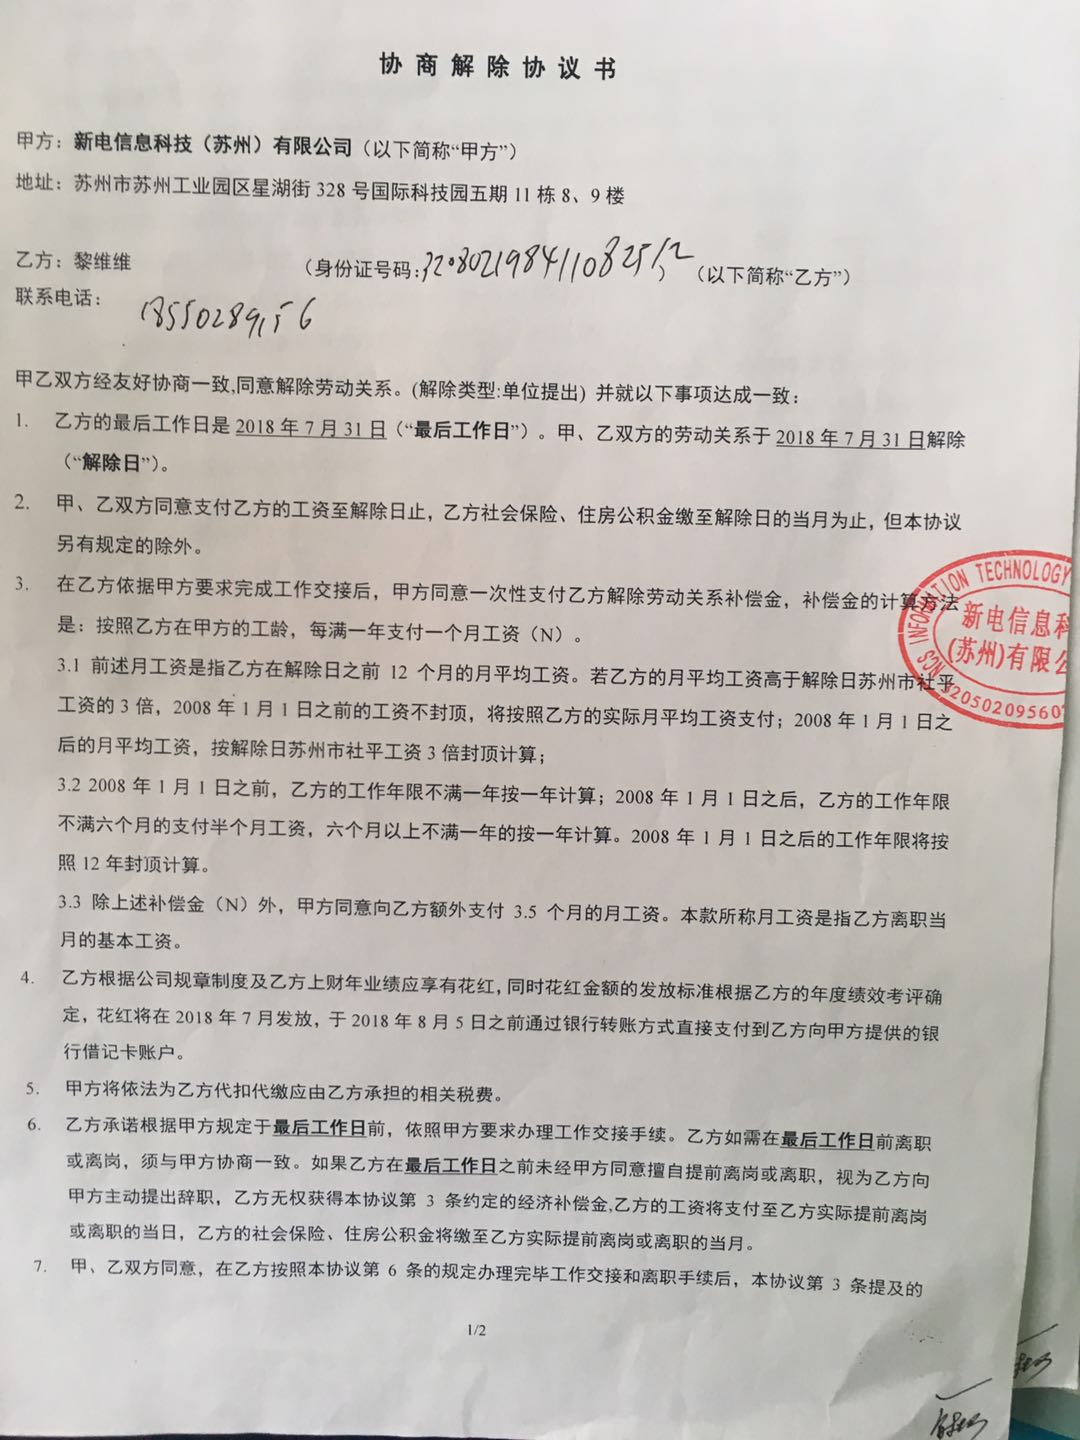 协商解除协议书
甲方：新电信息科技（苏州）有限公司（以下简称“甲方”）
地址：苏州市苏州工业园区星湖街 328 号国际科技园五期 11 栋 8、9 楼
乙方：黎维维 （身份证号码：320802198411082512）（以下简称“乙方”）
联系电话：18550289156
甲乙双方经友好协商一致,同意解除劳动关系。(解除类型:单位提出) 并就以下事项达成一致：
1. 乙方的最后工作日是 2018 年 7 月 31 日（“最后工作日”）。甲、乙双方的劳动关系于 2018 年 7 月 31 日解除
（“解除日”）。
2. 甲、乙双方同意支付乙方的工资至解除日止，乙方社会保险、住房公积金缴至解除日的当月为止，但本协议
另有规定的除外。
3. 在乙方依据甲方要求完成工作交接后，甲方同意一次性支付乙方解除劳动关系补偿金，补偿金的计算方法
是：按照乙方在甲方的工龄，每满一年支付一个月工资（N）。
3.1 前述月工资是指乙方在解除日之前 12 个月的月平均工资。若乙方的月平均工资高于解除日苏州市社平
工资的 3 倍，2008 年 1 月 1 日之前的工资不封顶，将按照乙方的实际月平均工资支付；2008 年 1 月 1 日之
后的月平均工资，按解除日苏州市社平工资 3 倍封顶计算；
3.2 2008 年 1 月 1 日之前，乙方的工作年限不满一年按一年计算；2008 年 1 月 1 日之后，乙方的工作年限
不满六个月的支付半个月工资，六个月以上不满一年的按一年计算。2008 年 1 月 1 日之后的工作年限将按
照 12 年封顶计算。
3.3 除上述补偿金（N）外，甲方同意向乙方额外支付 3.5 个月的月工资。本款所称月工资是指乙方离职当
月的基本工资。
4. 乙方根据公司规章制度及乙方上财年业绩应享有花红,同时花红金额的发放标准根据乙方的年度绩效考评确
定，花红将在 2018 年 7 月发放，于 2018 年 8 月 5 日之前通过银行转账方式直接支付到乙方向甲方提供的银
行借记卡账户。
5. 甲方将依法为乙方代扣代缴应由乙方承担的相关税费。
6. 乙方承诺根据甲方规定于最后工作日前，依照甲方要求办理工作交接手续。乙方如需在最后工作日前离职
或离岗，须与甲方协商一致。如果乙方在最后工作日之前未经甲方同意擅自提前离岗或离职，视为乙方向
甲方主动提出辞职，乙方无权获得本协议第 3 条约定的经济补偿金,乙方的工资将支付至乙方实际提前离岗
或离职的当日，乙方的社会保险、住房公积金将缴至乙方实际提前离岗或离职的当月。
7. 甲、乙双方同意，在乙方按照本协议第 6 条的规定办理完毕工作交接和离职手续后，本协议第 3 条提及的
1/2
NCS INFORMATION TECHNOLOGY
新电信息科
(苏州)有限公